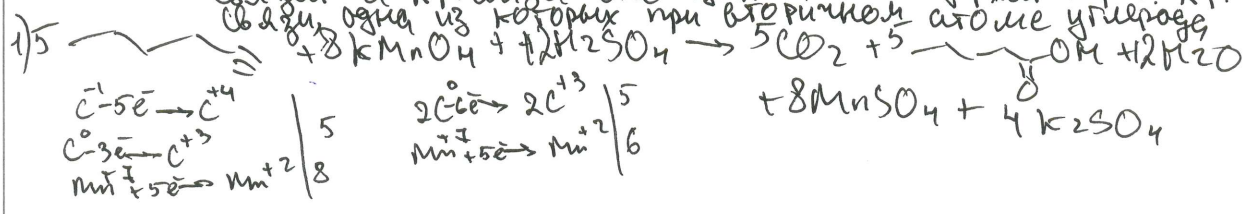 связи, одна из которых при вторичном атоме углерода
1) 5 + 8KMnO4 + 12H2SO4 → 5CO2 + 5 OH + 12H2O
O
+ 8MnSO4 + 4K2SO4
C⁻¹ - 5e̅ → C⁺⁴
C⁰ - 3e̅ → C⁺³ | 5
Mn⁺⁷ + 5e̅ → Mn⁺² | 8
2C⁰ - 6e̅ → 2C⁺³ | 5
Mn⁺⁷ + 5e̅ → Mn⁺² | 6